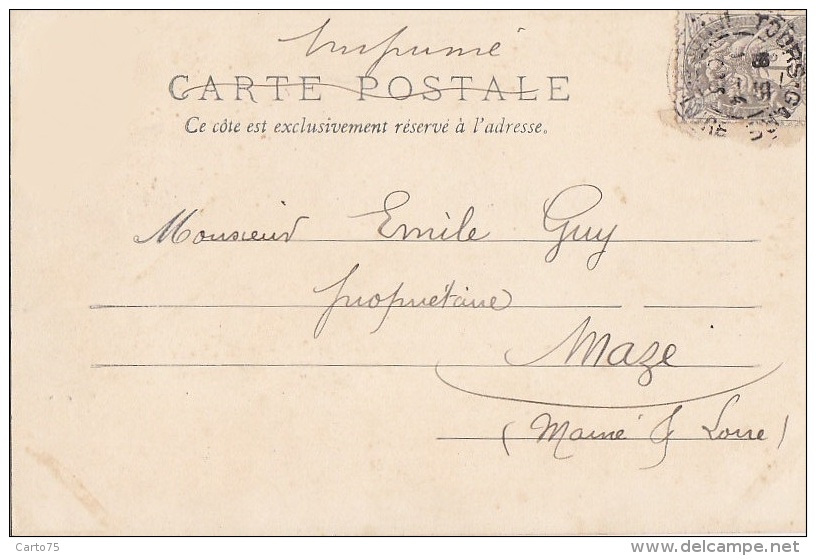 Imprimé
CARTE POSTALE
Ce côte est exclusivement réservé à l'adresse.
Monsieur Emile Guy
propriétaire
Mazé
(Maine & Loire)
TOURS-GARE
Carto75
delcampe.net